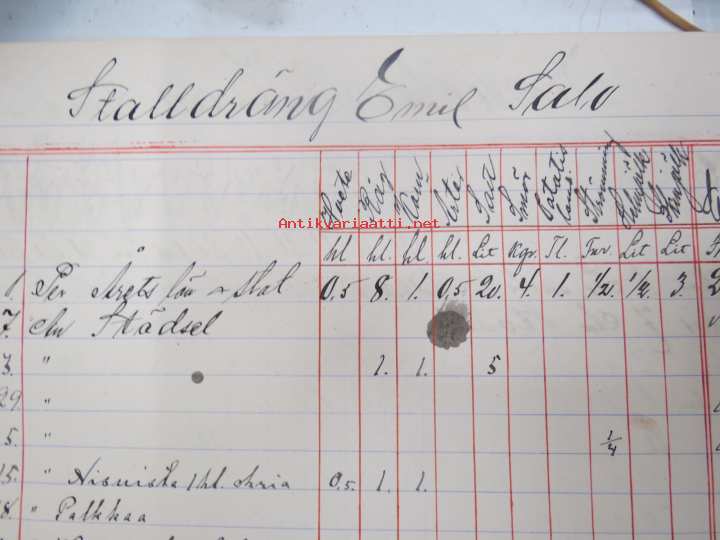 Stalldräng Emil Salo
Hvete Råg Korn Ärter Salt Smör Potatis land Strömming
Antikvariaatti.net
hl hl. hl hl. Lit Kgr. Tl. Lit Lit
1. Per Årets lön o Stat 0,5 8. 1. 0,5 20. 4. 1. 1/2. 1/2. 3. 2
7. An Städsel
3. " 1. 1. 5
29. "
5. " 1/4
15. " 1 hl. 0,5. 1. 1.
18. " Palkkaa